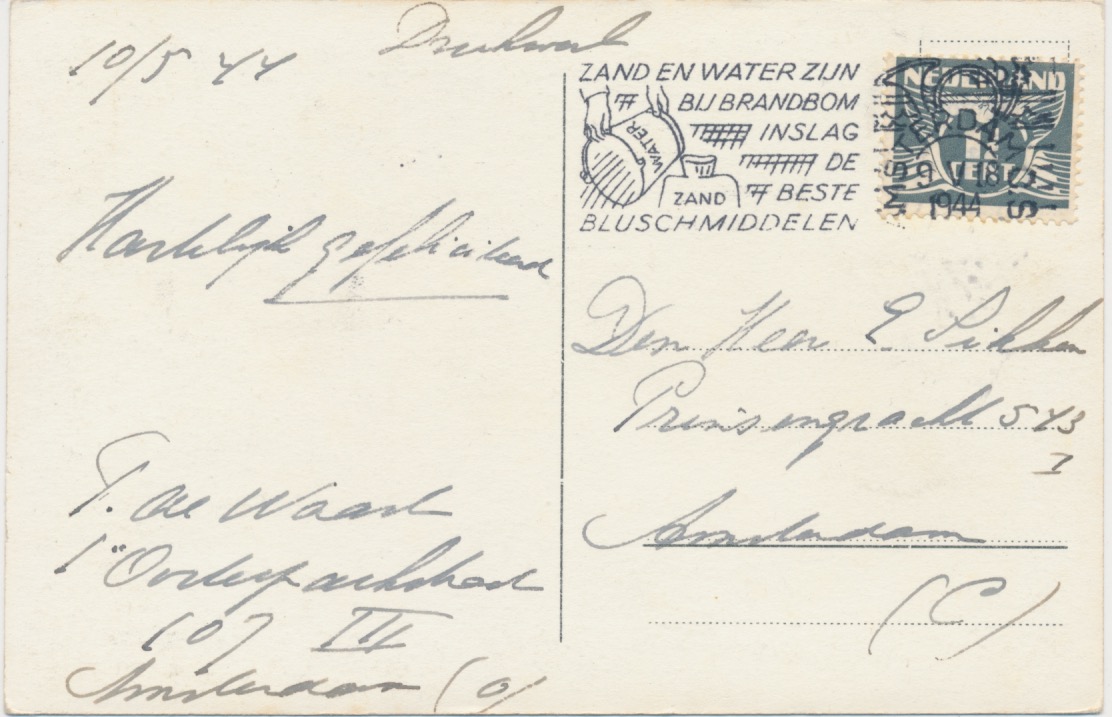 10/5 44
Drukwerk
ZAND EN WATER ZIJN
BIJ BRANDBOM
INSLAG
DE
BESTE
BLUSCHMIDDELEN
WATER
ZAND
NEDERLAND
CENT
AMSTERDAM
9 V 18
1944
Hartelijk gefeliciteerd
Den Heer E Sikken
Prinsengracht 543
I
Amsterdam
(C)
T. de Waard
107 III
Amsterdam (O)